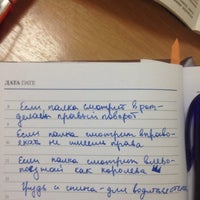 ДАТА DATE
Если палка смотрит в рот-
делаем правый поворот
Если палка смотрит вправо-
ехать не имеешь права
Если палка смотрит влево-
поезжай как королева
Грудь и спина - для водителя стена